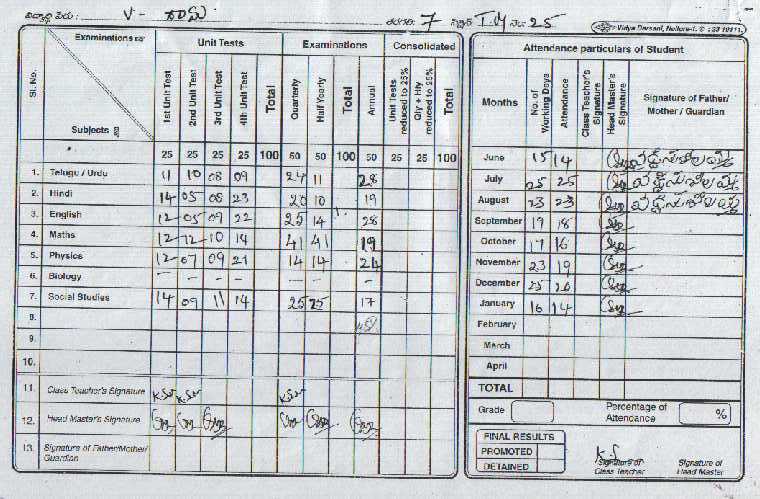 విద్యార్థి పేరు : V - రాము తరగతి 7 సెక్షన్ T.M నెం. 25
Vidya Darsani, Nellore-1.
Examinations
Subjects
Sl. No.
Unit Tests Examinations Consolidated
1st Unit Test 2nd Unit Test 3rd Unit Test 4th Unit Test Total Quarterly Half Yearly Total Annual Unit Tests reduced to 25% Qly + Hly reduced to 25% Total
25 25 25 25 100 50 50 100 50 25 25 100
1. Telugu / Urdu 11 10 08 09 24 11 28
2. Hindi 14 05 08 23 20 10 19
3. English 12 05 09 22 25 14 28
4. Maths 12 12 10 14 41 41 19
5. Physics 12 07 09 21 14 14 24
6. Biology - - - - - - -
7. Social Studies 14 09 11 14 25 25 17
8.
9.
10.
11. Class Teacher's Signature
12. Head Master's Signature
13. Signature of Father/Mother/
Guardian
Attendance particulars of Student
Months No. of Working Days Attendance Class Teacher's Signature Head Master's Signature Signature of Father/ Mother / Guardian
June 15 14
July 25 25
August 23 23
September 19 18
October 17 16
November 23 19
December 25 20
January 16 14
February
March
April
TOTAL
Grade Percentage of Attendance %
FINAL RESULTS
PROMOTED
DETAINED
Signature of Class Teacher
Signature of Head Master